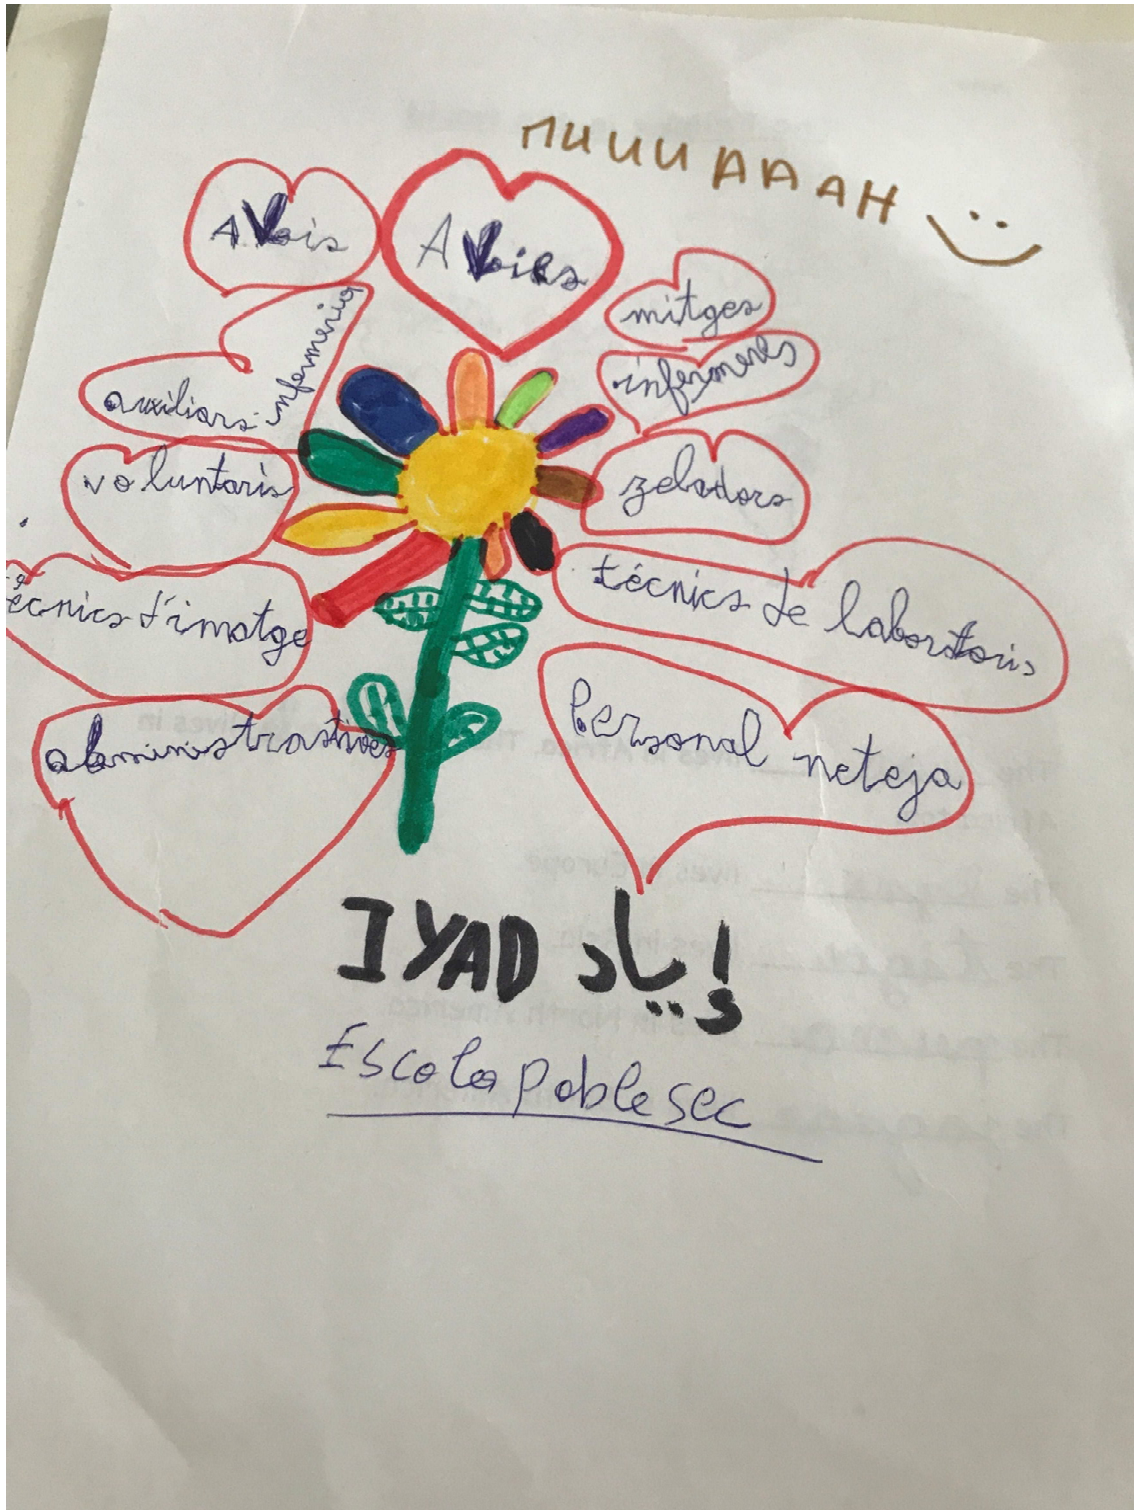 MUUUAAAAH
AVis
AVies
mitges
infermeres
auxiliars infermeria
voluntaris
zeladors
tècnics d'imatge
técnics de laboratoris
administratives
Personal neteja
IYAD إياد
Escola Poble sec